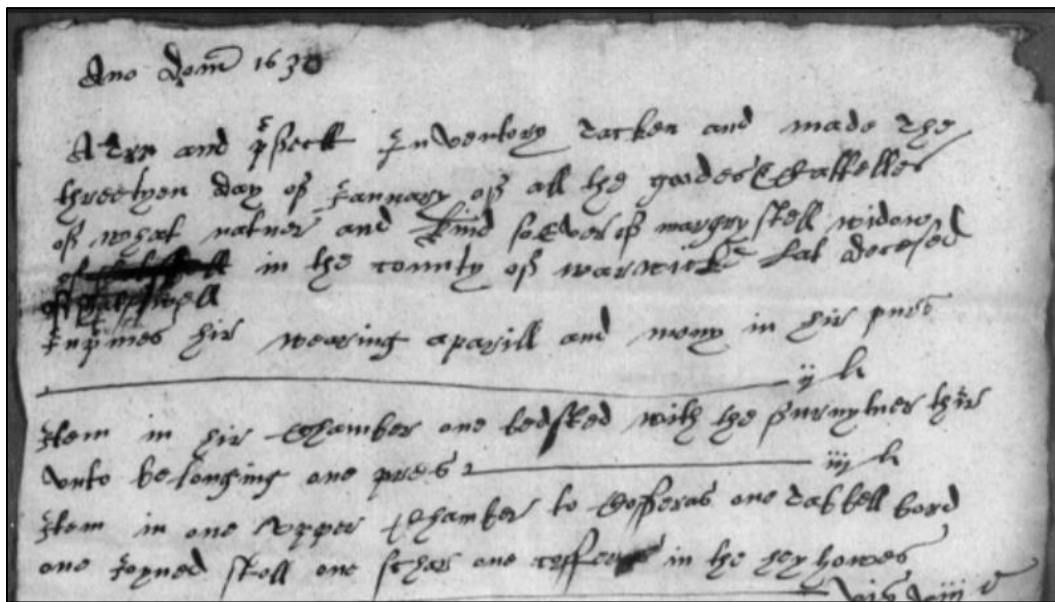 Ano Dom 1630
A Trn and pfectt Inventory Tacken and made the
threetyen day of January of all the goodes Cattelles
of what natuer and kind soever of margry stell widow
in the county of warwicke Lat decesed
Inpimes hir wearing aparill and mony in hir purs
ij li
Item in hir Chamber one bedsted with the furnytuer thir
unto belonging one pres iij li
Item in one upper Chamber to Cofferas one Tabbell bord
one Joyned stoll one schar one coffer in the hey howes